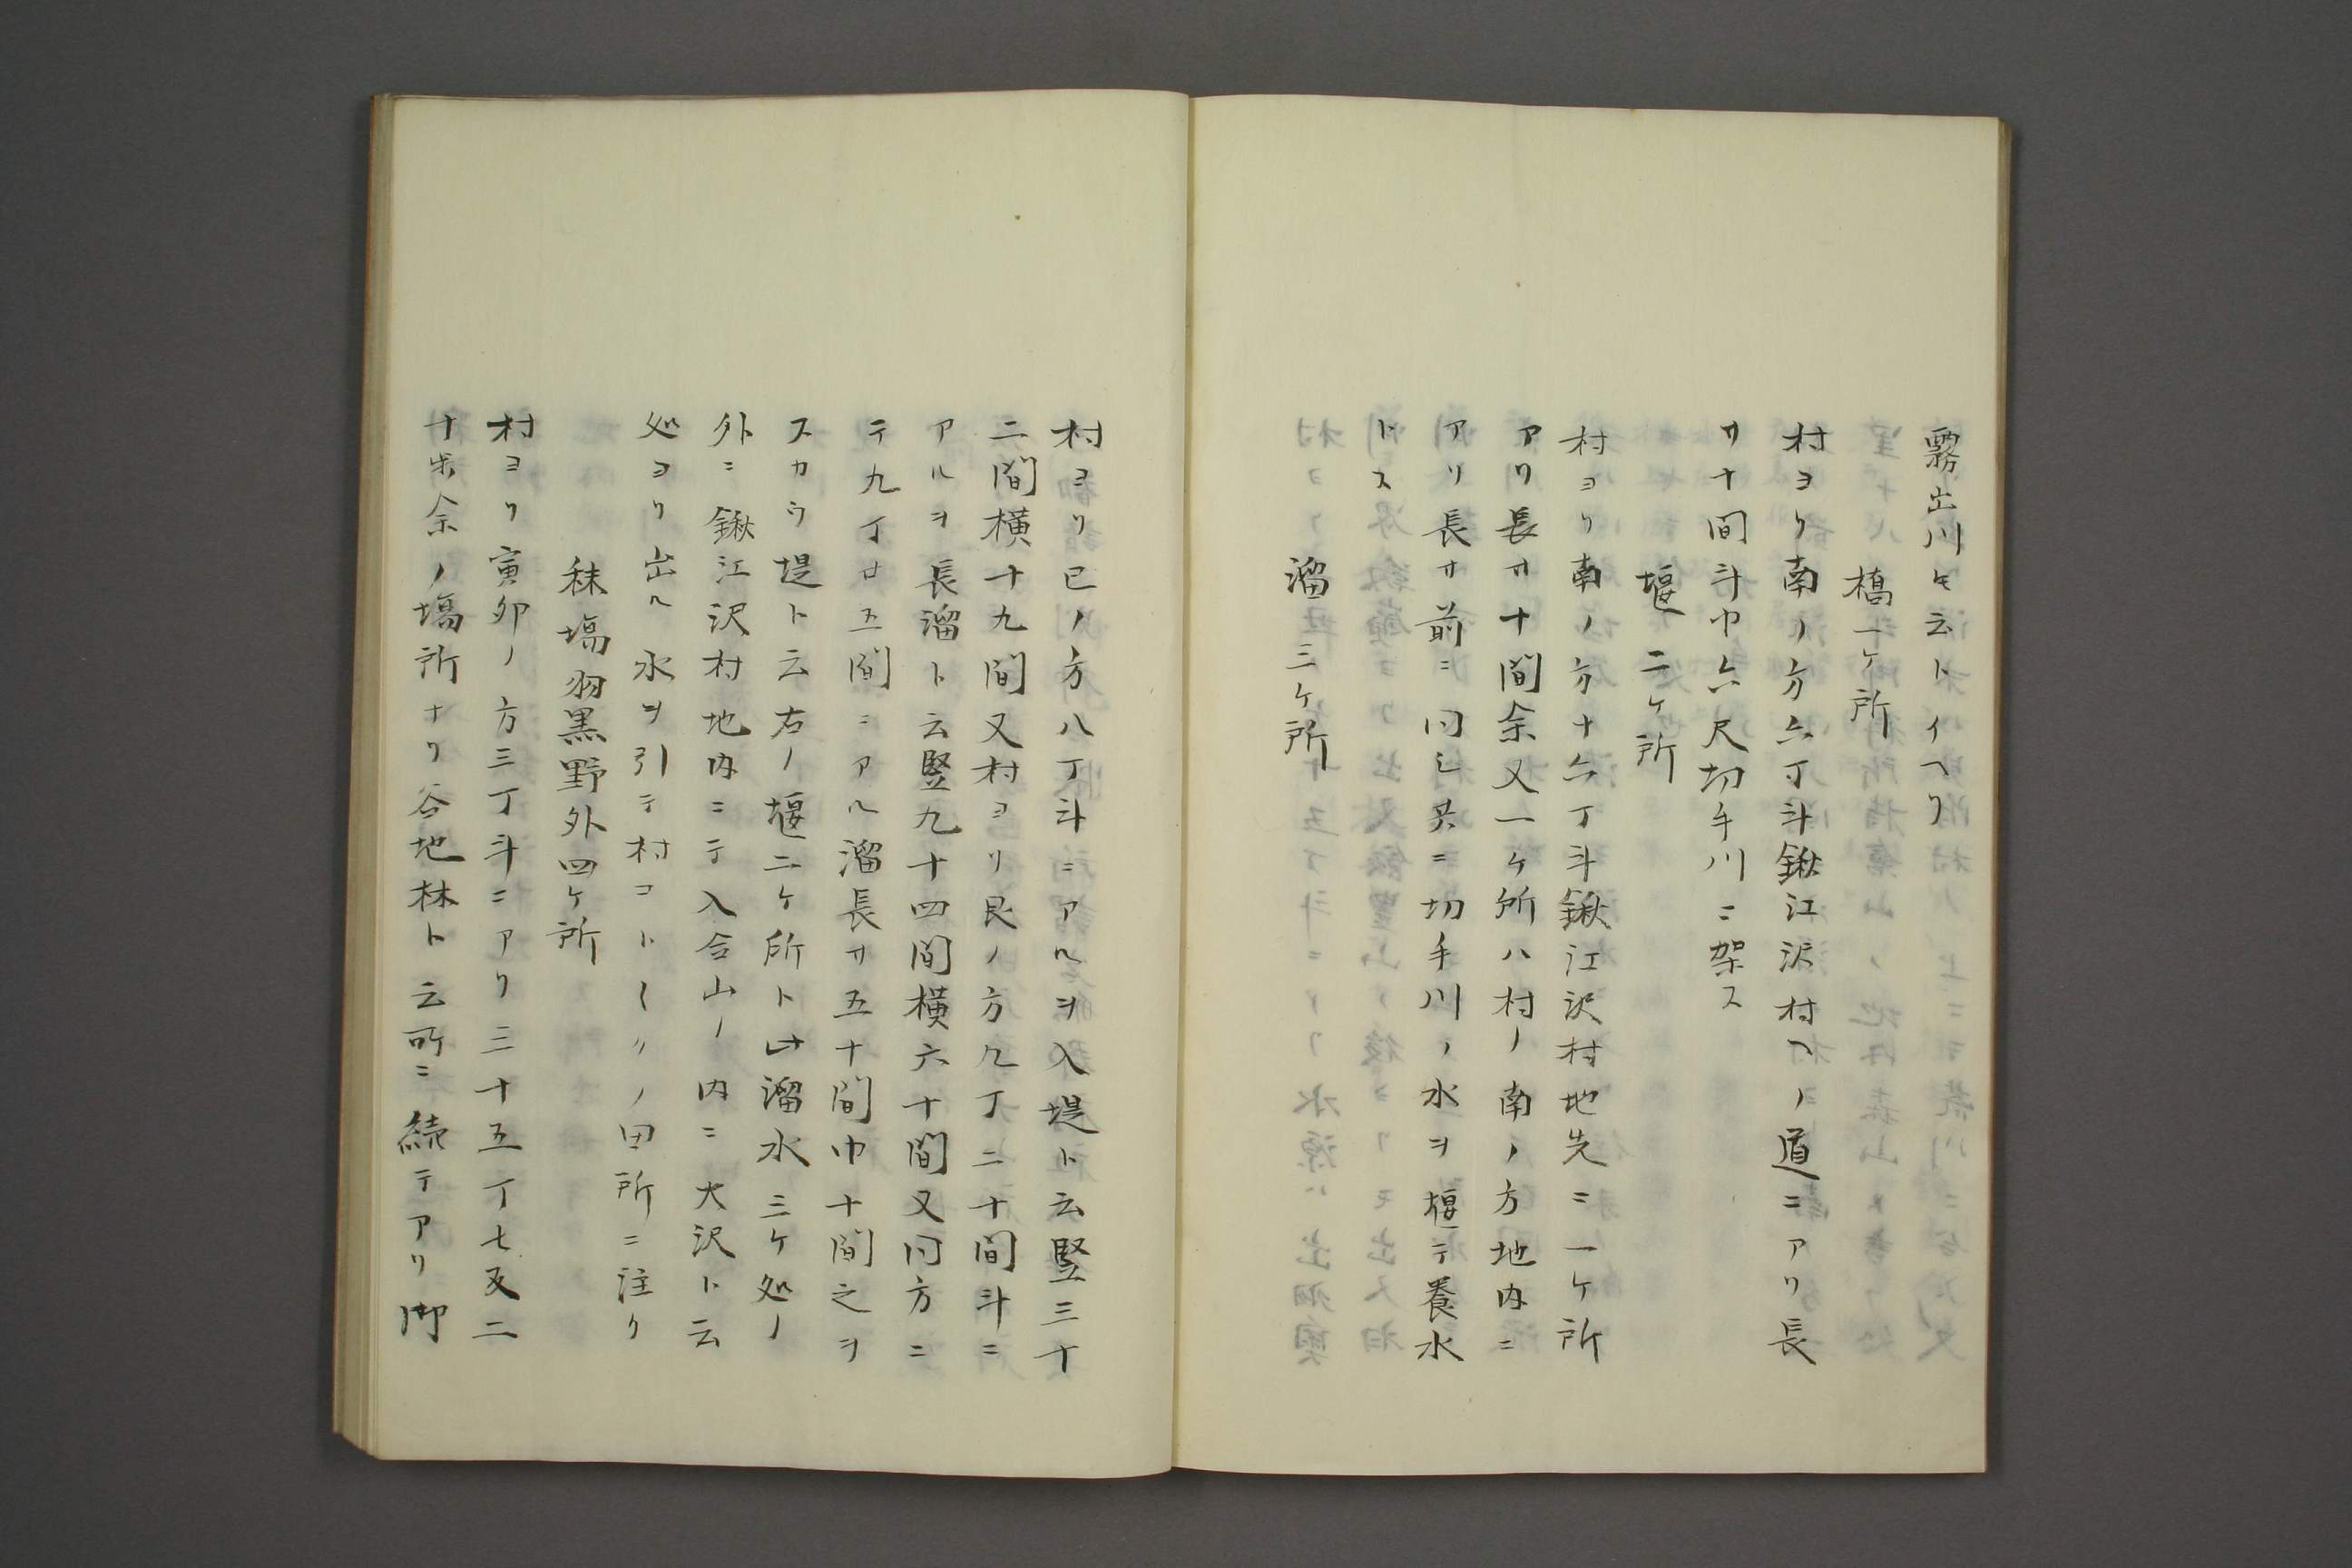 霧出川モ云トイヘリ
橋一ケ所
村ヨリ南ノ方六丁斗鍬江沢村ヘノ道ニアリ長
サ十間斗巾六尺切手川ニ架ス
堰二ケ所
村ヨリ南ノ方十六丁斗鍬江沢村地先ニ一ケ所
アリ長サ十間余又一ケ所ハ村ノ南ノ方地内ニ
アリ長サ前ニ同シ共ニ切手川ノ水ヲ堰テ養水
トス
溜三ケ所
村ヨリ巳ノ方八丁斗ニアルヲ入堤ト云竪三十
二間横十九間又村ヨリ艮ノ方九丁二十間斗ニ
アルヲ長溜ト云竪九十四間横六十間又同方ニ
テ九丁廿五間ニアル溜長サ五十間巾十間之ヲ
スカウ堤ト云右ノ堰二ケ所ト此溜水三ケ処ノ
外ニ鍬江沢村地内ニテ入合山ノ内ニ大沢ト云
処ヨリ出ル水ヲ引テ村コト〳〵クノ田所ニ注ク
秣場羽黒野外四ケ所
村ヨリ寅卯ノ方三丁斗ニアリ三十五丁七反二
十歩余ノ場所ナリ谷地林ト云所ニ続テアリ御